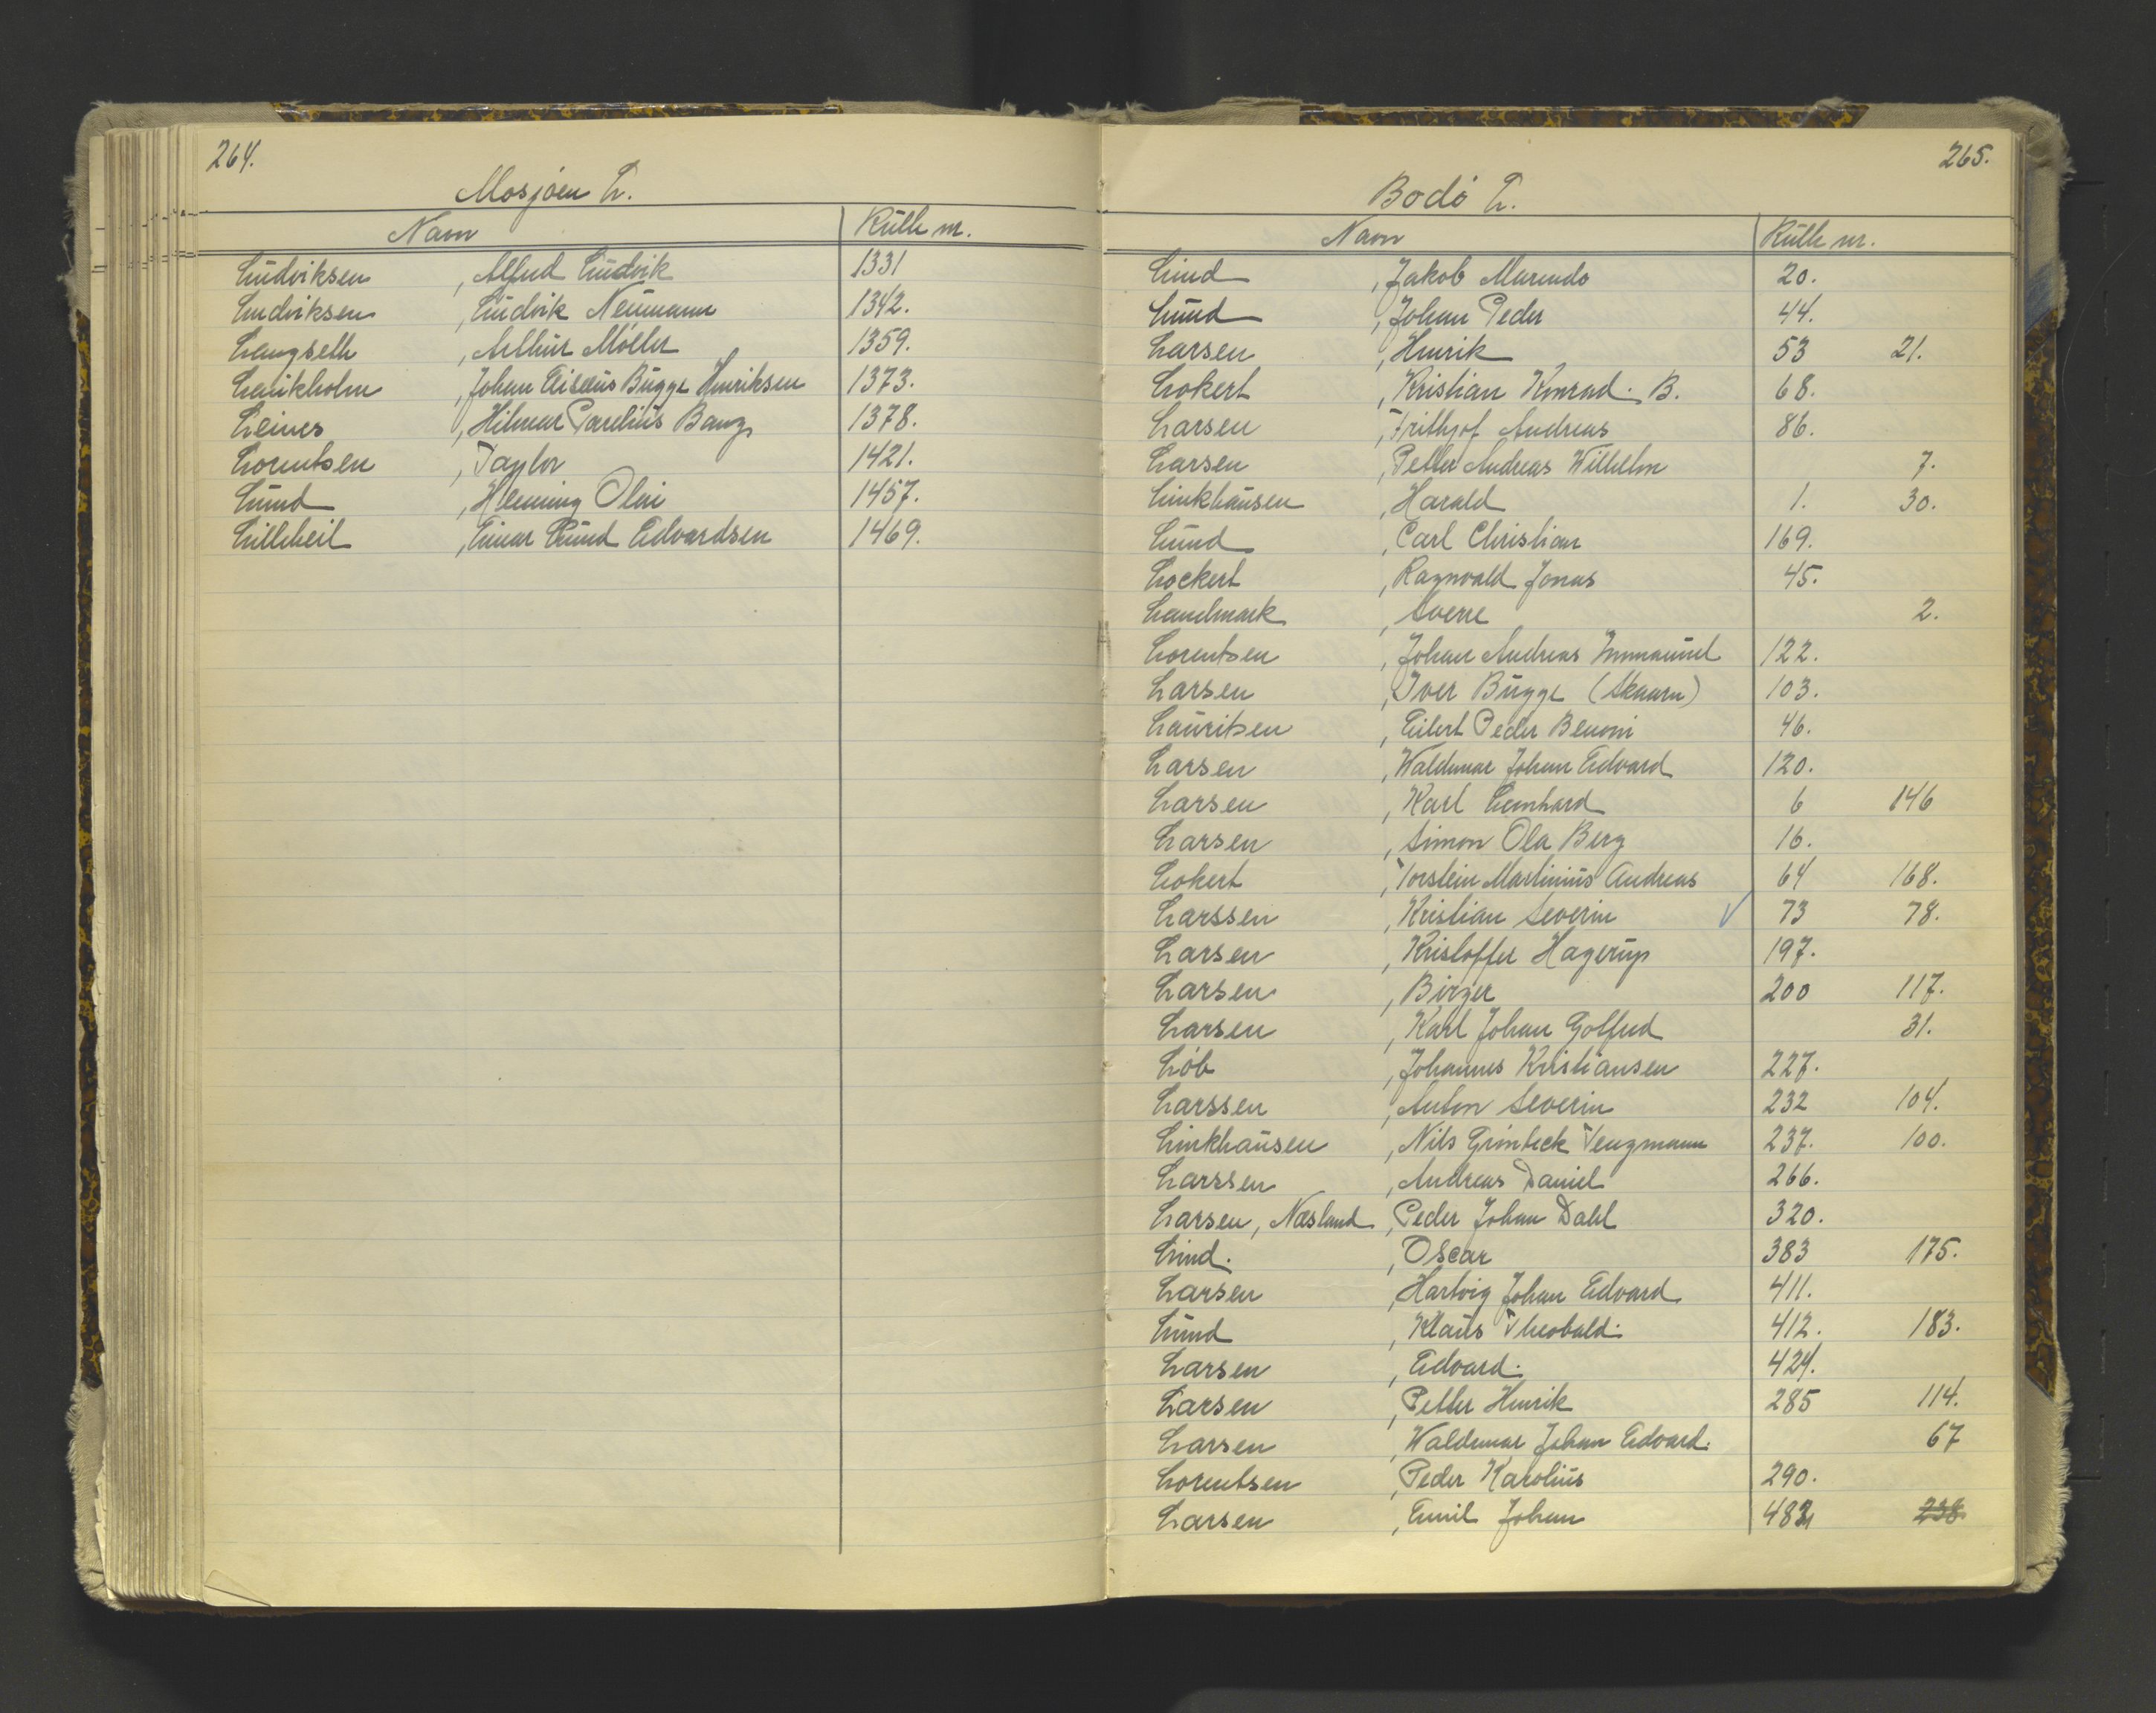 264.
Mosjøen L.
Navn Rulle nr.
Ludviksen , Alfred Ludvik 1331
Ludviksen , Ludvik Neumann 1342.
Langseth , Arthur Møller 1359.
Leirikholm , Johan Bugge Henriksen 1373.
Leines , Hilmar Parelius Bang 1378.
Lorentsen , Taylor 1421.
Lund , Henning Olai 1457.
Lilleheil , Einar Lund Edvardsen 1469.
265.
Bodø L.
Navn Rulle nr.
Lind , Jakob 20.
Lund , Johan Peder 44.
Larsen , Henrik 53 21.
Lokert , Kristian Konrad. B. 68.
Larsen , Frithjof Andreas 86.
Larsen , Petter Andreas Wilhelm 7.
Linkhausen , Harald 1. 30.
Lund , Carl Christian 169.
Lockert , Ragnvald Jonas 45.
Landmark , Sverre 2.
Lorentsen , Johan Andreas Immanuel 122.
Larsen , Iver Bugge (Skaarn) 103.
Lauritsen , Eilert Peder Benoni 46.
Larsen , Waldemar Johan Edvard 120.
Larsen , Karl Leonhard 6 146
Larsen , Simon Ola Berg 16.
Lokert , Torstein Martinius Andreas 64 168.
Larssen , Kristian Severin ✓ 73 78.
Larsen , Kristoffer Hagerup 197.
Larsen , Birger 200 117.
Larsen , Karl Johan Gotfred 31.
Løb , Johannes Kristiansen 227.
Larssen , Anton Severin 232 104.
Linkhausen , Nils Grønbeck Vengmann 237. 100.
Larssen , Andreas Daniel 266.
Larsen, Næsland , Peder Johan Dahl 320.
Lind. , Oscar 383 175.
Larsen , Hartvig Johan Edvard 411.
Lund , Klaus Theobald. 412. 183.
Larsen , Edvard. 424.
Larsen , Petter Henrik 285 114.
Larsen , Waldemar Johan Edvard. 67
Lorentsen , Peder Karolius 290.
Larsen , Emil Johan 238